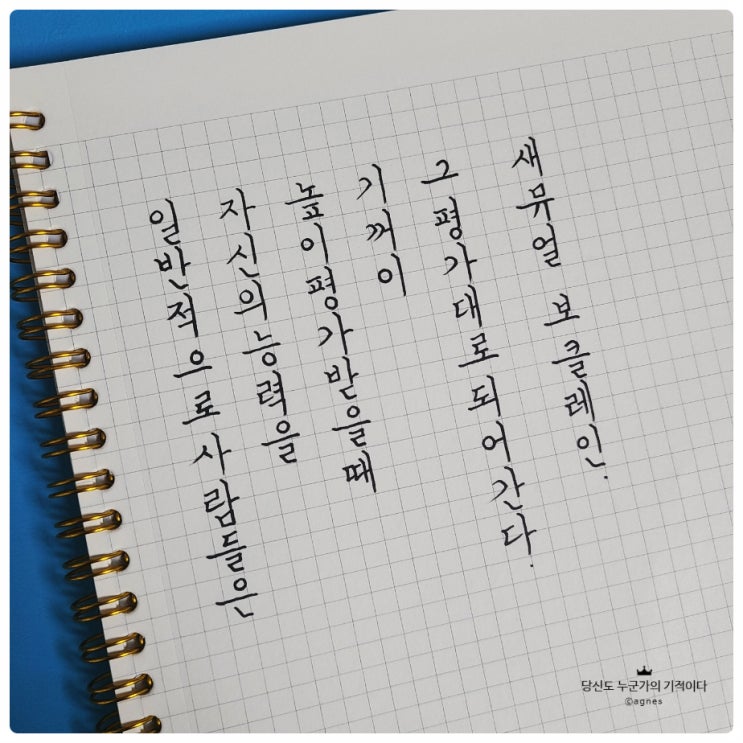 일반적으로 사람들은
자신의 능력을
높이 평가받을 때
기꺼이
그 평가대로 되어간다.
새뮤얼 보클레인.
당신도 누군가의 기적이다
©agnes